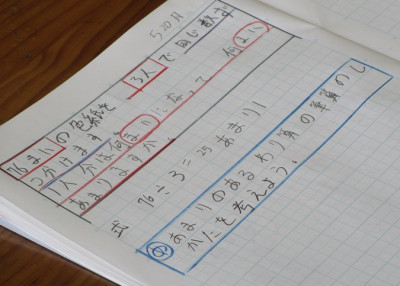 76まいの色紙を3人で同じ数ず
つ分けます。
1人分は何まいになって何まい
あまりますか。
式 76÷3=25あまり1
め あまりのあるわり算の筆算のし
かたを考えよう。